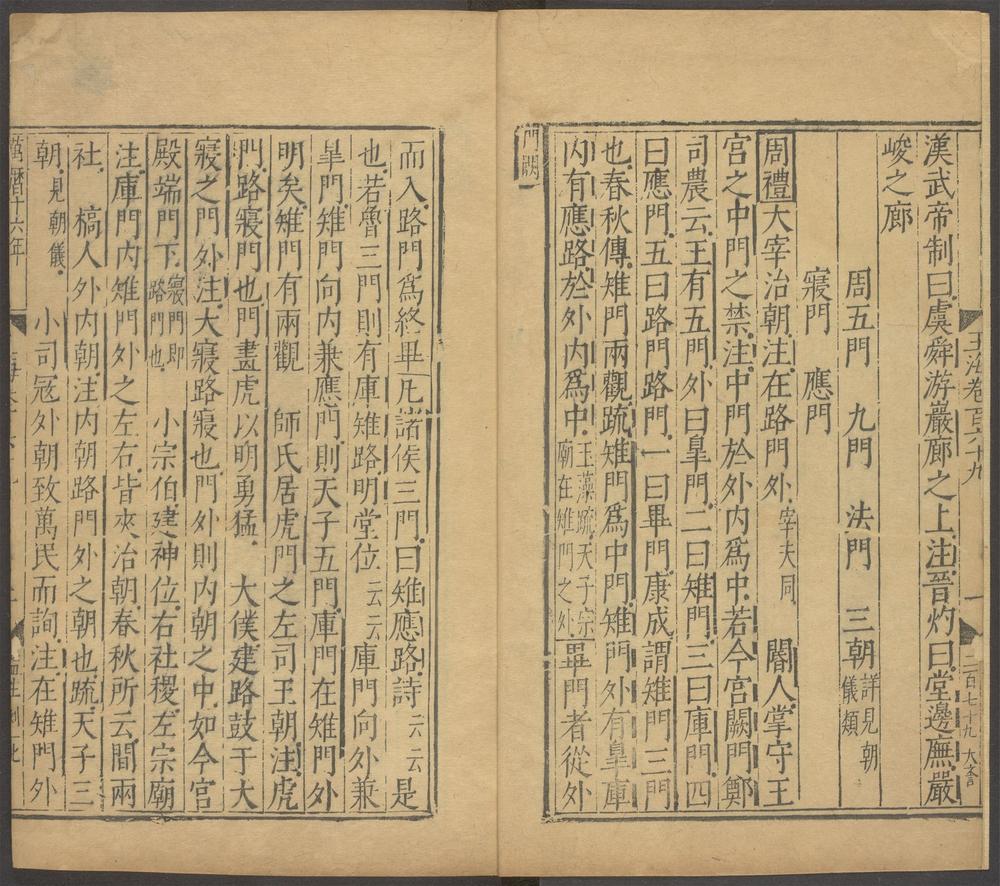 玉海卷百六十九 一 二百七十九
漢武帝制曰虞舜游巖廊之上注晉灼曰堂邊廡嚴
峻之廊
周五門 九門 法門 三朝詳見朝儀類
寢門 應門
周禮大宰治朝注在路門外宰夫同 閽人掌守王
宮之中門之禁注中門於外內爲中若今宮闕門鄭
司農云王有五門外曰臯門二曰雉門三曰庫門四
曰應門五曰路門路門一曰畢門康成謂雉門三門
也春秋傳雉門兩觀疏雉門爲中門雉門外有臯庫
內有應路於外內爲中玉藻疏天子宗廟在雉門之外畢門者從外
門闕
而入路門爲終畢凡諸侯三門曰雉應路詩云云是
也若魯三門則有庫雉路明堂位云云庫門向外兼
臯門雉門向內兼應門則天子五門庫門在雉門外
明矣雉門有兩觀 師氏居虎門之左司王朝注虎
門路寢門也門畫虎以明勇猛 大僕建路鼓于大
寢之門外注大寢路寢也門外則內朝之中如今宮
殿端門下寢門即路門也 小宗伯建神位右社稷左宗廟
注庫門內雉門外之左右皆夾治朝春秋所云間兩
社 槁人外內朝注內朝路門外之朝也疏天子三
朝見朝儀 小司冦外朝致萬民而詢注在雉門外
萬曆十六年